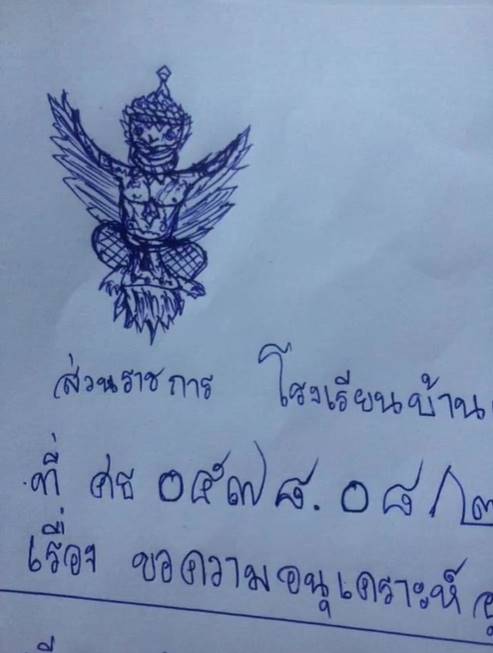 ส่วนราชการ โรงเรียนบ้าน
ที่ ศธ ๐๕๗๘.๐๘/๒
เรื่อง ขอความอนุเคราะห์